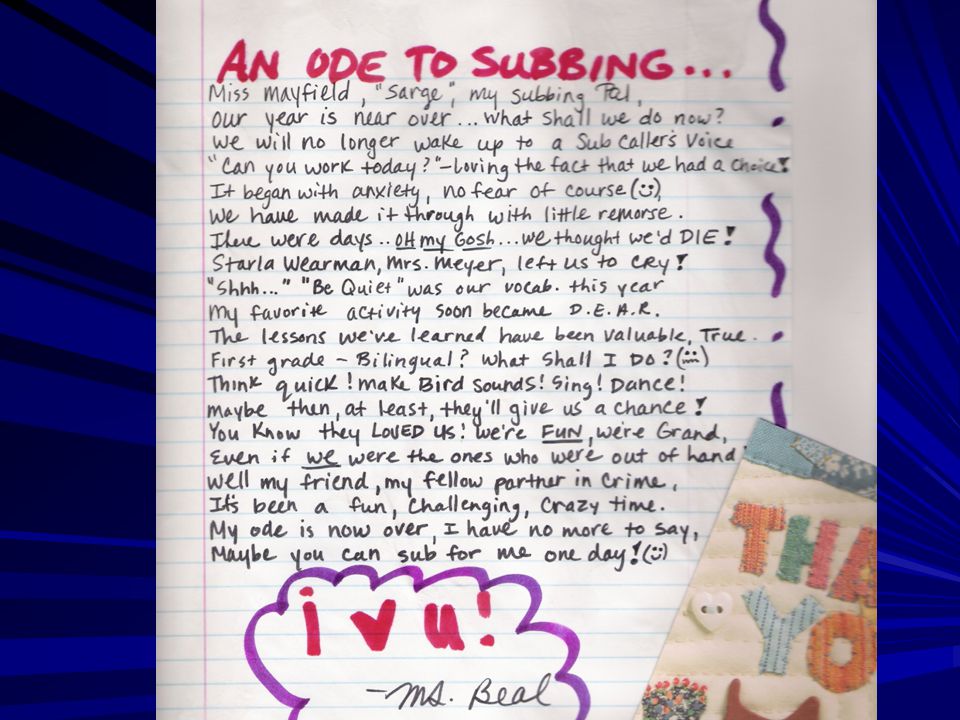 AN ODE TO SUBBING...
Miss Mayfield, "Sarge", my subbing Pal,
our year is near over... what shall we do now?
we will no longer wake up to a Sub Caller's Voice
"Can you work today?" - loving the fact that we had a choice!
It began with anxiety, no fear of course (☺),
We have made it through with little remorse.
There were days.. OH my Gosh... we thought we'd DIE!
Starla Wearman, Mrs. Meyer, left us to CRY!
"Shhh..." "Be Quiet" was our vocab. this year
My favorite activity soon became D.E.A.R.
The lessons we've learned have been valuable, True.
First grade - Bilingual? What shall I DO?
Think quick! make Bird sounds! Sing! Dance!
maybe then, at least, they'll give us a chance!
You Know they LOVED US! We're FUN, we're Grand,
Even if we were the ones who were out of hand!
Well my friend, my fellow partner in Crime,
It's been a fun, Challenging, Crazy time.
My ode is now over, I have no more to say,
Maybe you can sub for me one day! (☺)
i ♥ u!
-Ms. Beal
THA
YO